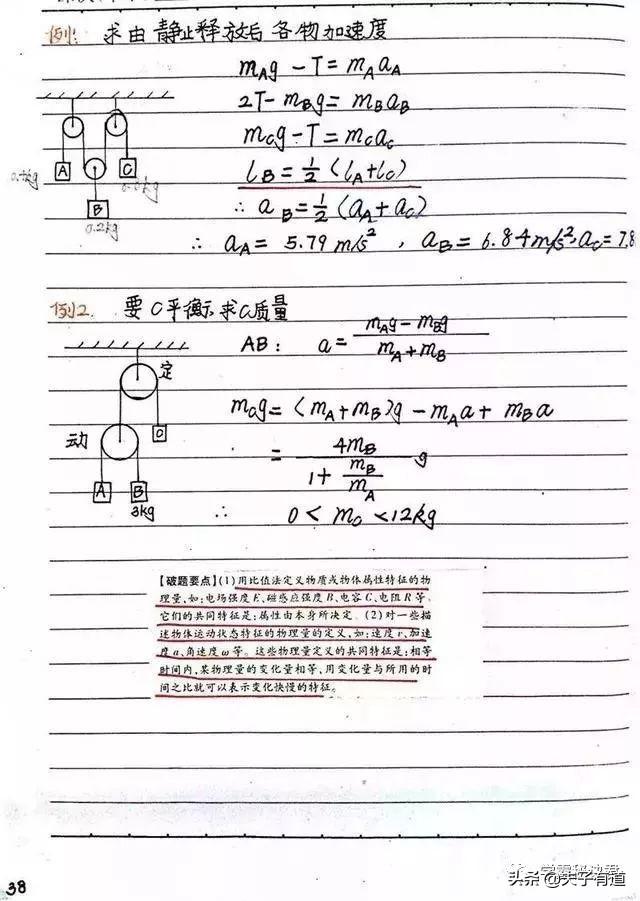 例1: 求由静止释放后各物加速度
mAg-T=mAaA
2T-mBg=mBaB
mCg-T=mCaC
A
C
B
0.2kg
lB=1/2(lA+lC)
∴ aB=1/2(aA+aC)
∴ aA=5.79m/s², aB=6.84m/s², aC=7.8
例2. 要C平衡,求C质量
AB: a=(mAg-mBg)/(mA+mB)
定
mCg=(mA+mB)g-mAa+mBa
C
动
=4mB/(1+mB/mA) g
A
B
3kg
∴ 0<mC<12kg
【破题要点】(1)用比值法定义物质或物体属性特征的物
理量,如:电场强度E、磁感应强度B、电容C、电阻R等。
它们的共同特征是:属性由本身所决定。(2)对一些描
述物体运动状态特征的物理量的定义,如:速度v、加速
度a、角速度ω等。这些物理量定义的共同特征是:相等
时间内,某物理量的变化量相等,用变化量与所用的时
间之比就可以表示变化快慢的特征。
头条@天子有道
38